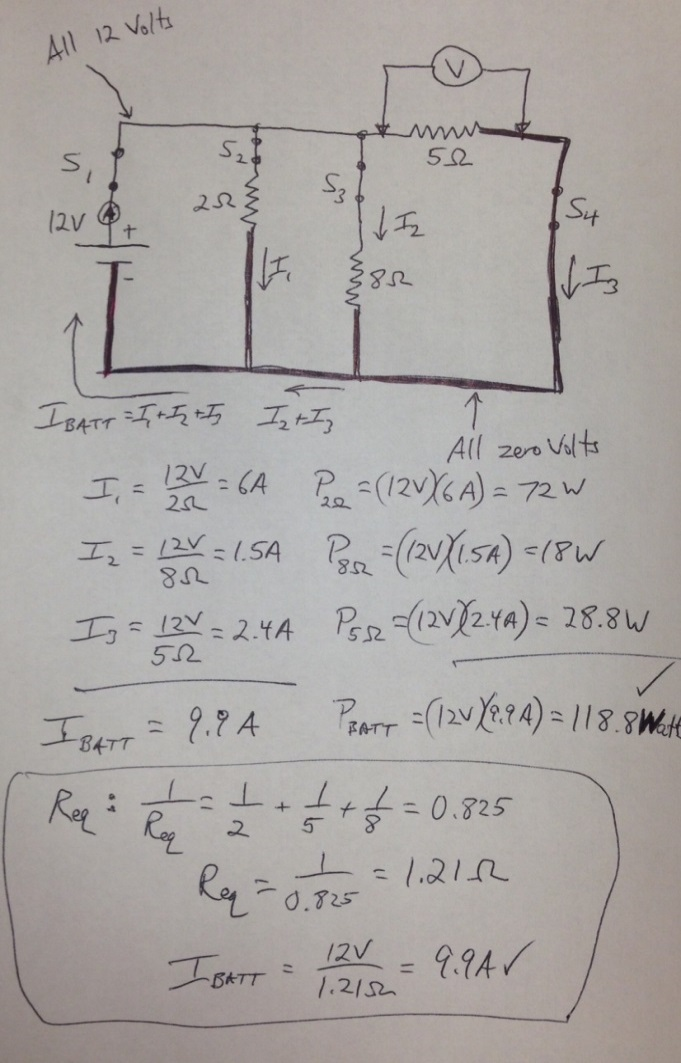 All 12 Volts
V
5Ω
S1
S2
S3
S4
12V
+
-
2Ω
I1
I2
8Ω
I3
IBATT = I1+I2+I3
I2+I3
All zero Volts
I1 = 12V/2Ω = 6A P2Ω = (12V)(6A) = 72W
I2 = 12V/8Ω = 1.5A P8Ω = (12V)(1.5A) = 18W
I3 = 12V/5Ω = 2.4A P5Ω = (12V)(2.4A) = 28.8W
IBATT = 9.9A PBATT = (12V)(9.9A) = 118.8Watt ✓
Req : 1/Req = 1/2 + 1/5 + 1/8 = 0.825
Req = 1/0.825 = 1.21Ω
IBATT = 12V/1.21Ω = 9.9A ✓